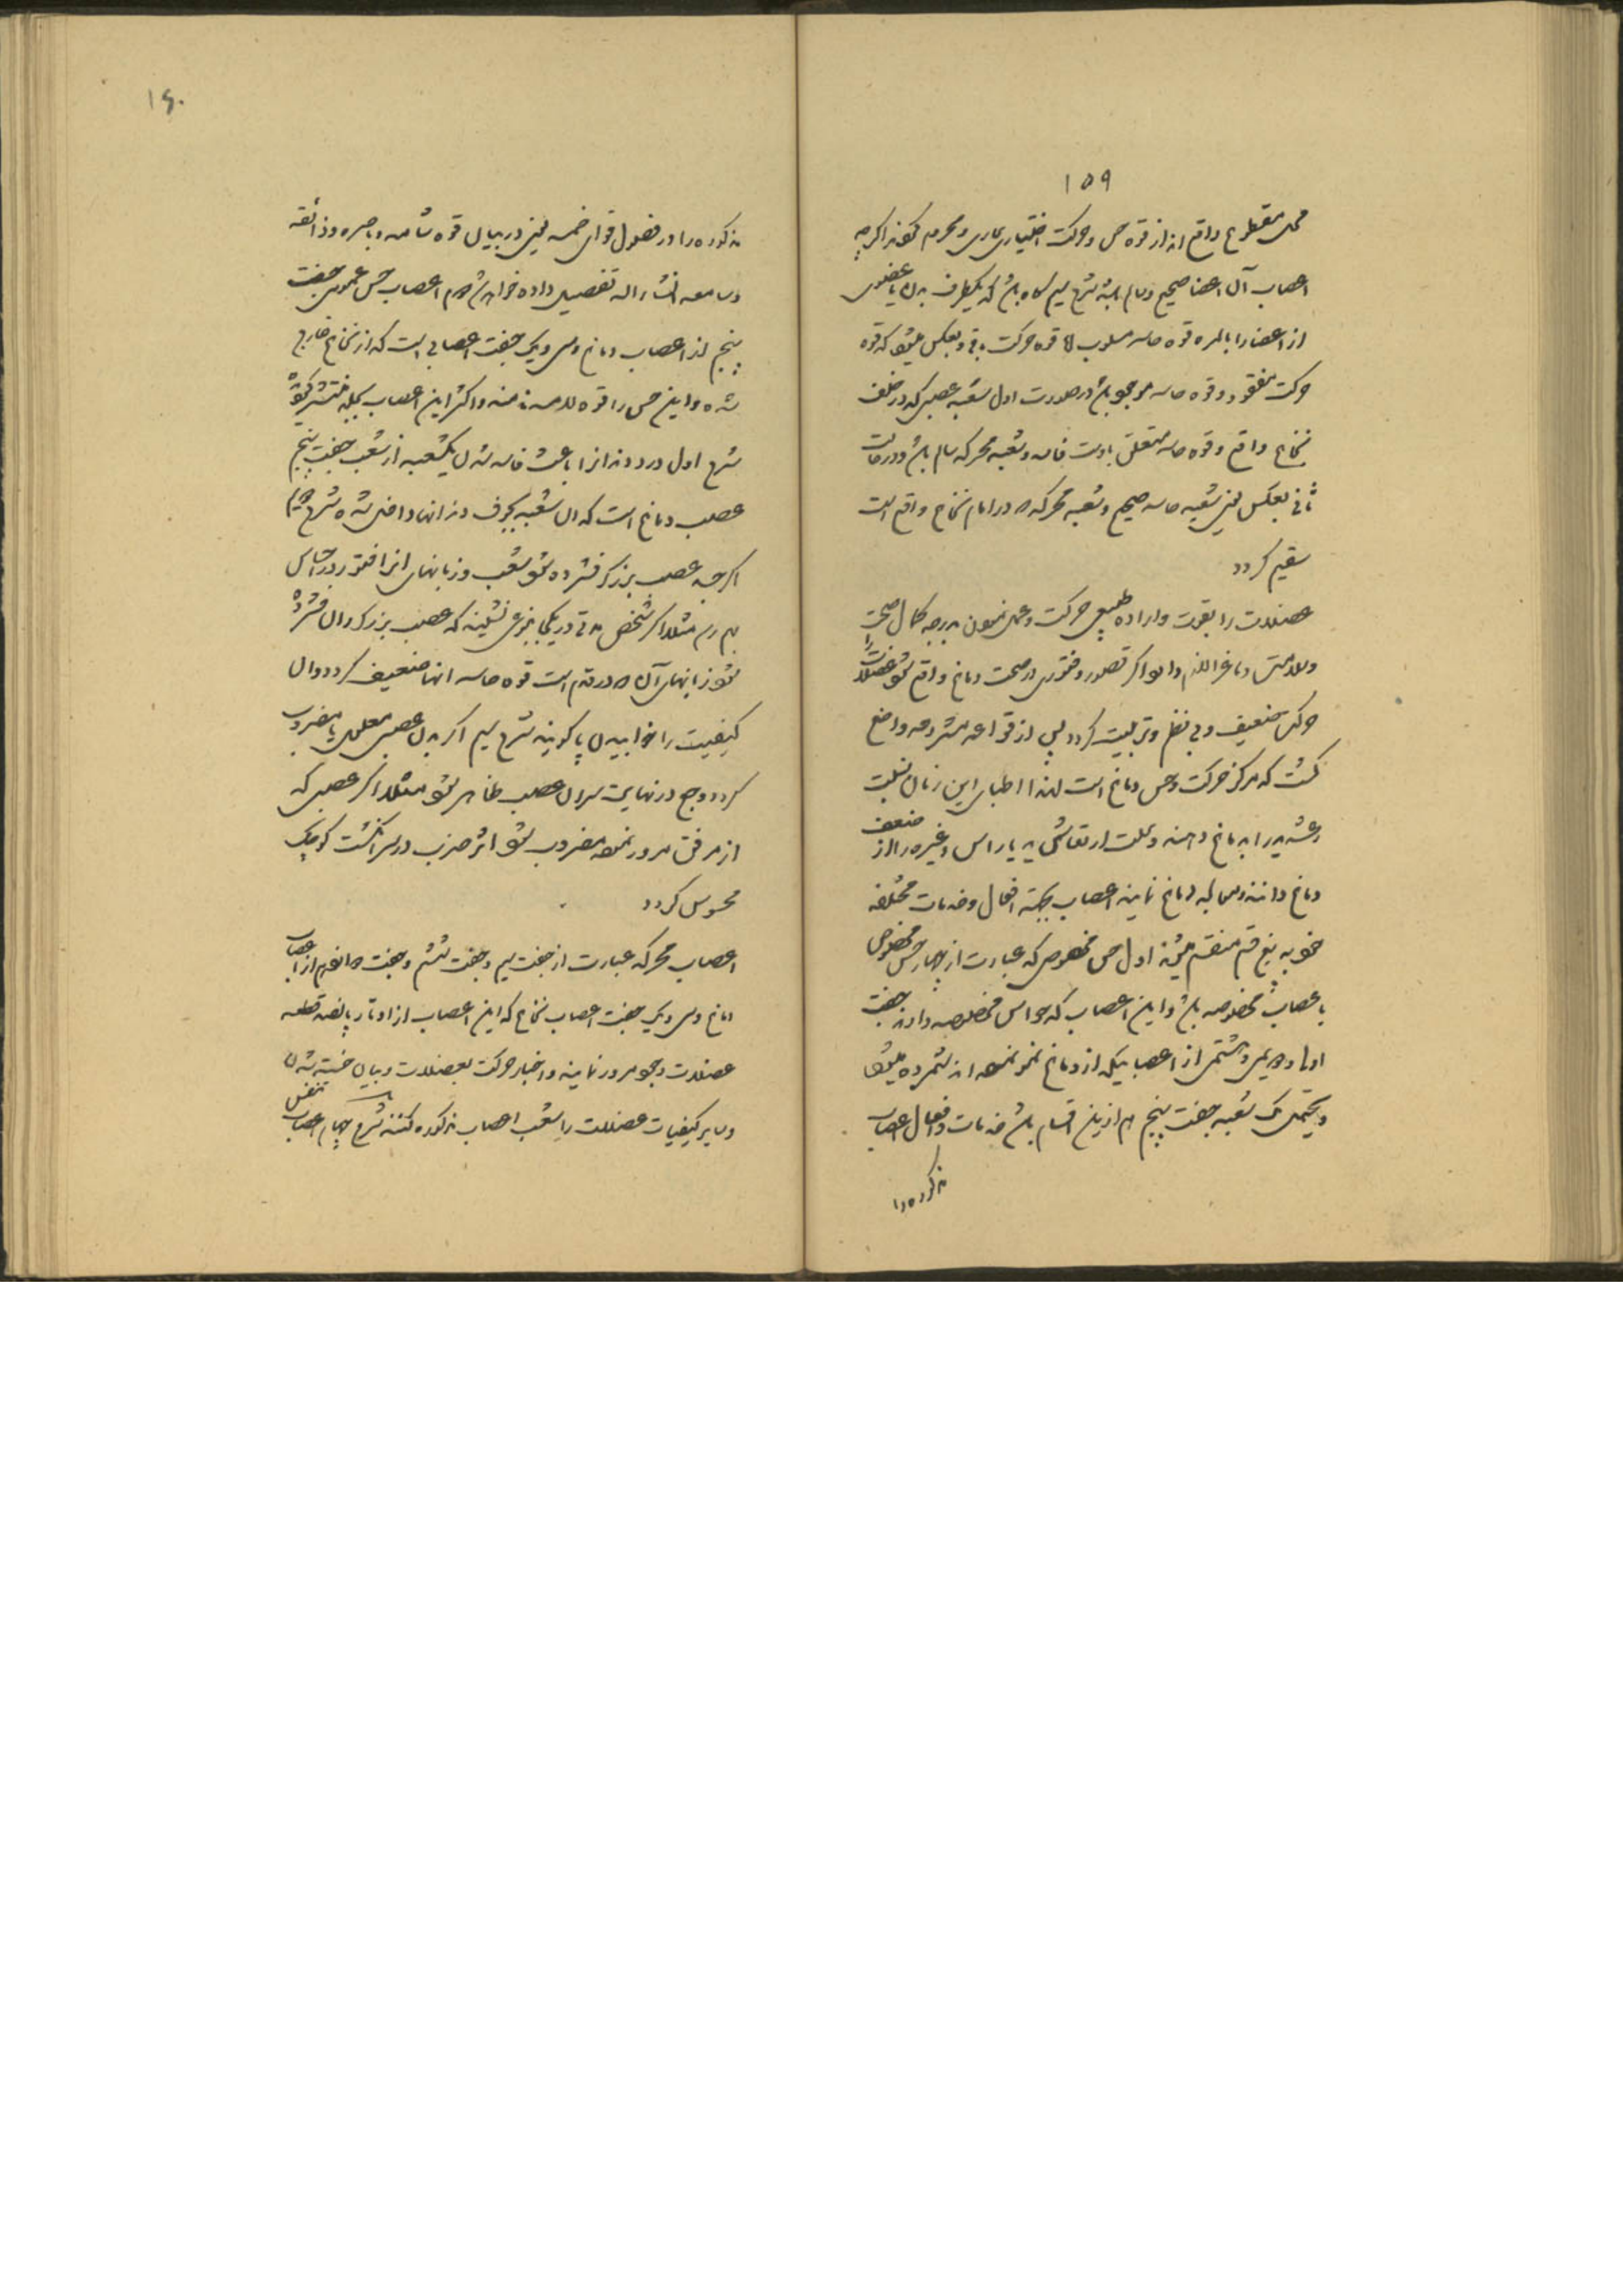 ۱۵۹
محل مقطوع واقع اند از قوه حس و حرکت اختیاری عاری و محروم شوند اگرچه
اعصاب آن اعضا صحیح و سالم باشند شرح سیم گاه باشد که یکطرف بدن یا عضوی
از اعضا را بالمره قوه حاسه مسلوب اما قوه حرکت باقی و بعکس میشود که قوه
حرکت مفقود و قوه حاسه موجود باشد در صورت اول شعبه عصبی که در خلف
نخاع واقع و قوه حاسه متعلق باوست فاسد و شعبه محرکه سالم باشد و در حالت
ثانی بعکس یعنی شعبه حاسه صحیح و شعبه محرکه که در امام نخاع واقع است
سقیم گردد
عضلات را بقوت و اراده طبیعی حرکت و عمل نمودن بدرجه کمال صحت
و سلامتی دماغ را لازم دارد اگر قصور و فتوری در صحت دماغ واقع شود عضلات را
حرکتی ضعیف و بی نظم و ترتیب گردد پس از قواعد مشروحه واضح
گشت که مرکز حرکت و حس دماغ است لهذا اطبای این زمان نسبت
رعشه را به دماغ دهند و علت ارتعاش ... و غیره را از ضعف
دماغ دانند و ... دماغ نمایند اعصاب بجهة افعال و خدمات مختلفه
خود به پنج قسم منقسم میشوند اول حس مخصوص که عبارت از چهار حس مخصوص
باعصاب مخصوصه باشد و این اعصاب که حواس مخصوصه دارند جفت
اول و دویم و هشتم از اعصابیکه از دماغ نمو نموده اند شمرده میشود
و یحتمل یک شعبه جفت پنجم هم ازین اقسام باشد خدمات و افعال اعصاب
مذکوره را
۱۶۰
مذکوره را در فصول قوای خمسه یعنی در بیان قوه شامه و باصره و ذائقه
و سامعه انشاء الله تفصیل داده خواهد شد دویم اعصاب حس عمومی جفت
پنجم از اعصاب دماغ و سی و یک جفت اعصابی است که از نخاع خارج
شده و این حس را قوه لامسه نامند و اکثر این اعصاب بجلد منتشر گشته
شرح اول درد دندان را باعث فاسد شدن یکشعبه از شعب جفت پنجم
عصب دماغ است که آن شعبه بجوف دندانها داخل شده شرح دویم
اگر چه عصب بزرگ فشرده شود شعب و زبانهای آنرا فتور در احساس
بهم رسد مثلا اگر شخص مدتی در یکجا بنوعی نشیند که عصب بزرگ ران فشرده
شود زبانهای آن که در قدم است قوه حاسه آنها ضعیف گردد و آن
کیفیت را خوابیدن پا گویند شرح سیم اگر بدن عصبی معلول یا مضروب
گردد وجع در نهایت سر آن عصب ظاهر شود مثلا اگر عصبی که
از مرفق مرور نموده مضروب شود اثر ضرب در سر انگشت کوچک
محسوس گردد
اعصاب محرکه عبارت از جفت سیم و جفت ششم و جفت دوازدهم از اعصاب
دماغ و سی و یک جفت اعصاب نخاع که این اعصاب از اوتار ... قطعه
عضلات و جوهر مرور نمایند و اخبار حرکت بعضلات و بیان خسته شدن
و سایر کیفیات عضلات را شعب اعصاب مذکوره کنند شرح چهارم اعصاب تنفس